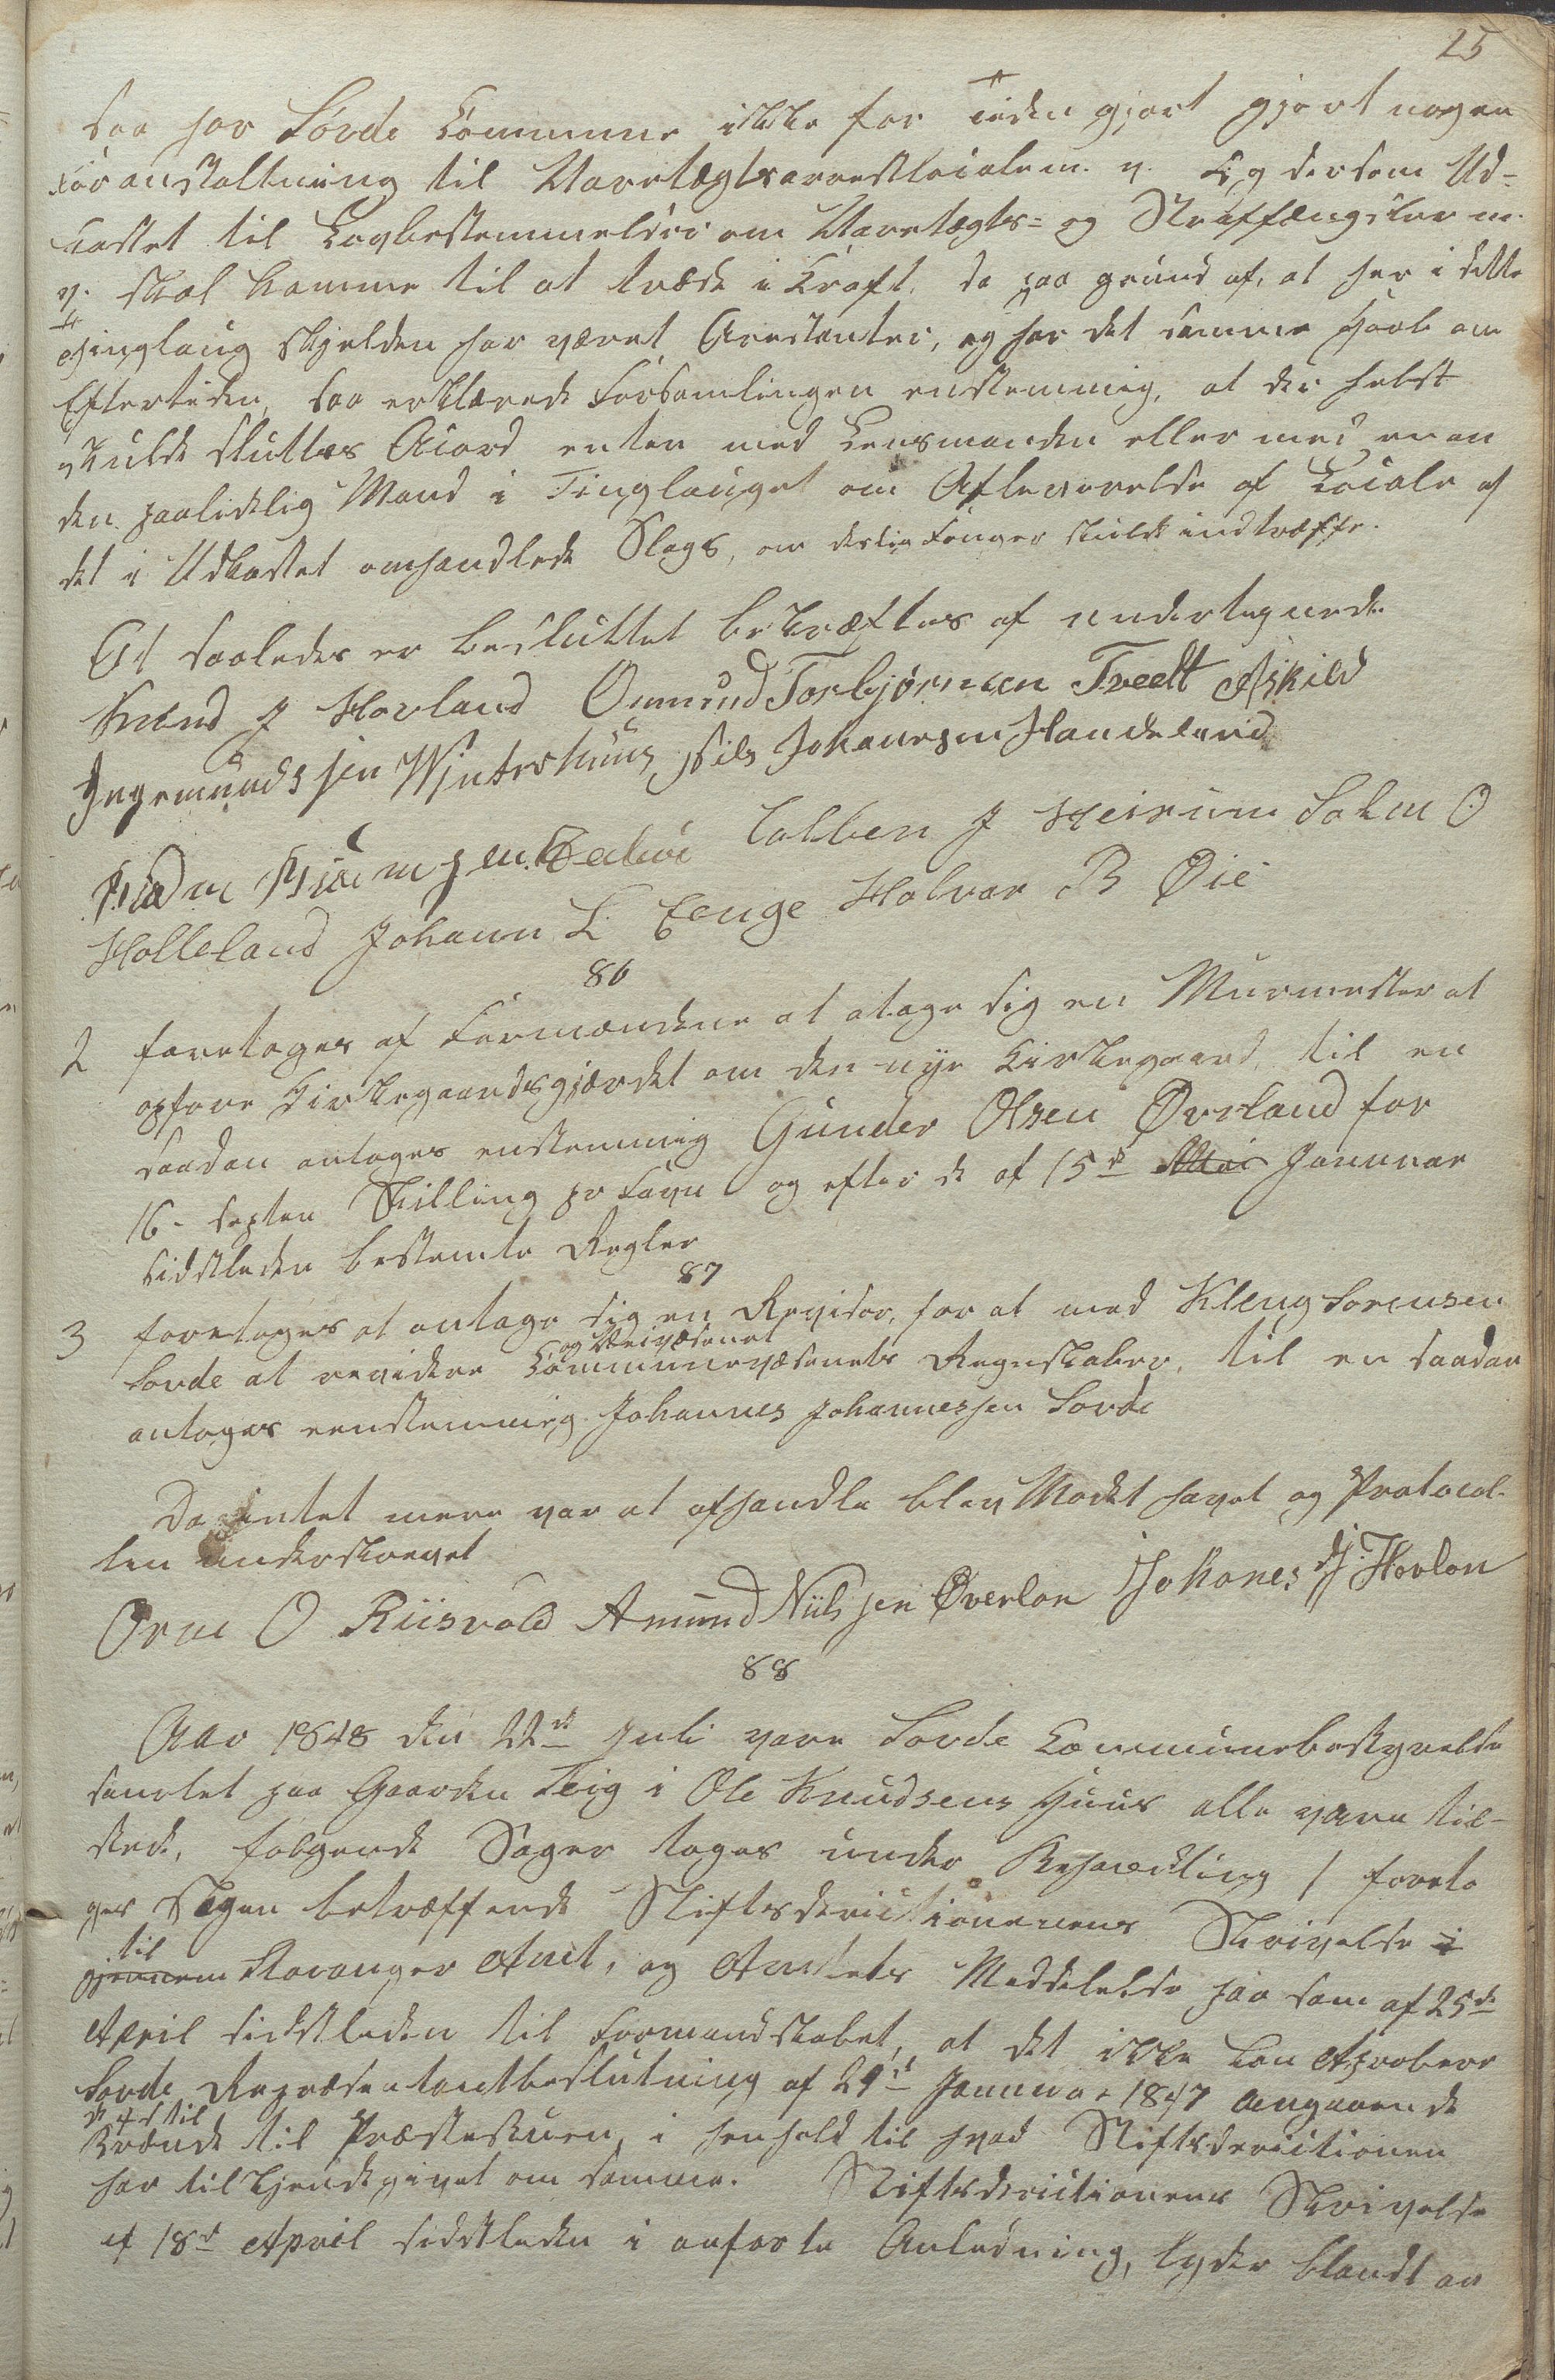 25
saa har Sovde Commune ikke for tiden gjort gjort nogen
Foranstaltning til Varetægtsarrestlocale m. v. Og dersom Ud-
kastet til Lovbestemmelser om Varetægts- og Straffængsler m.
v. skal komme til at træde i Kraft, da paa grund af, at her i dette
Thinglaug skjelden har været Arestanter, og har det samme Haab om
Eftertiden, saa erklærede Forsamlingen enstemmig, at der helst
skulde sluttes Acord enten med Lensmanden eller med en an
den paalidelig Mand i Tinglauget om Afleverelse af Locale af
det i Udkastet omhandlede Slags, om deslige Fanger skulde indtræffe.
At saaledes er besluttet bekræftes af undertegnede
Knud J Hovland Omund Torbjørnsen Tveedt Askild
Ingemundssen Wintershuus Nils Johanesen Handeland
Tolben J Heirum Salm O
Holleland Johann L Eenge Halvar B Øie
86
2 foretoges af Formændene at atage sig en Muurmester at
opføre Kirkegaardsgjærdet om den nye Kirkegaard, til en
saadan antoges enstemmig Gunder Olsen Øvrland for
16 - sexten Skilling pr Favn og efter de af 15de Mai Januar
sidstleden bestemte Regler
87
3 foretoges at antage sig en Revisor, for at med Kleng Sorensen
og Veivæsenet
Sovde at revidere Communevæsenets Regnskaber, til en saadan
antoges eenstemmig Johannes Johannessen Sovde
Da intet mere var at afhandle blev Mødet hævet og Protocol-
len underskrevet
Orm O Riisvold Amund Nilssen Øverlan Johanes J. Hovlan
88
Aar 1848 den 22de Juli vare Sovde Communebestyrelse
samlet paa Gaarden Teig i Ole Knudsens Huus alle vare til-
stede, følgende Sager toges under Behandling 1 foreto
ges Sagen betræffende Stiftsderictionenens Skrivelse i
til
gjennem Stavanger Amt, og Amtets Meddelelse paa sam af 25de
April sidstleden til Formandskabet, at det ikke kan Aprobere
Sovde Repræsentantbeslutning af 29de Januar 1847 angaaende
Brænde til Præstestuen, i henhold til hvad Stiftsderictionen
har tilkjendegivet om samme. Stiftsderictionens Skrivelse
af 18de April sidstleden i anførte Anledning, lyder blandt an